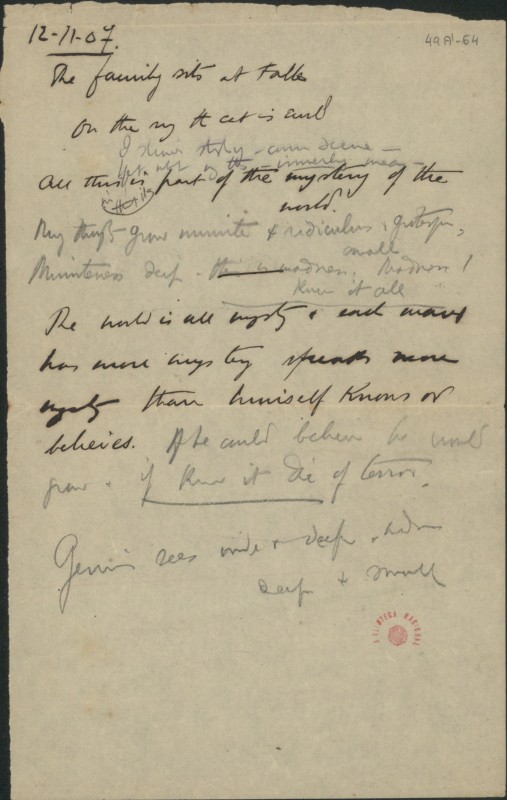 12-11-07.
49A¹-64
The family sits at table
On the rug the cat is curl'd
I scene
not
All this is part of the mystery of the
world.
in its
My thought grows minute & ridiculous,
small
Minuteness deep madness. Madness!
Know it all
The world is all mystery & each man
has more mystery speaks more
mystery than himself knows or
believes. If he could believe he would
grow & if knew it die of terror.
Genius sees wide & deep,
deep & small
BIBLIOTECA NACIONAL